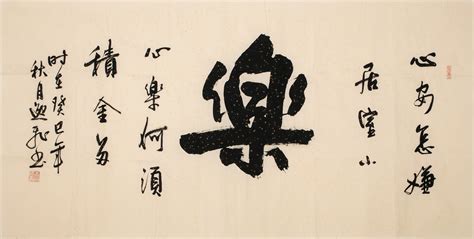 心安怎嫌
居室小
樂
心樂何須
積金多
时在癸巳年
秋月书